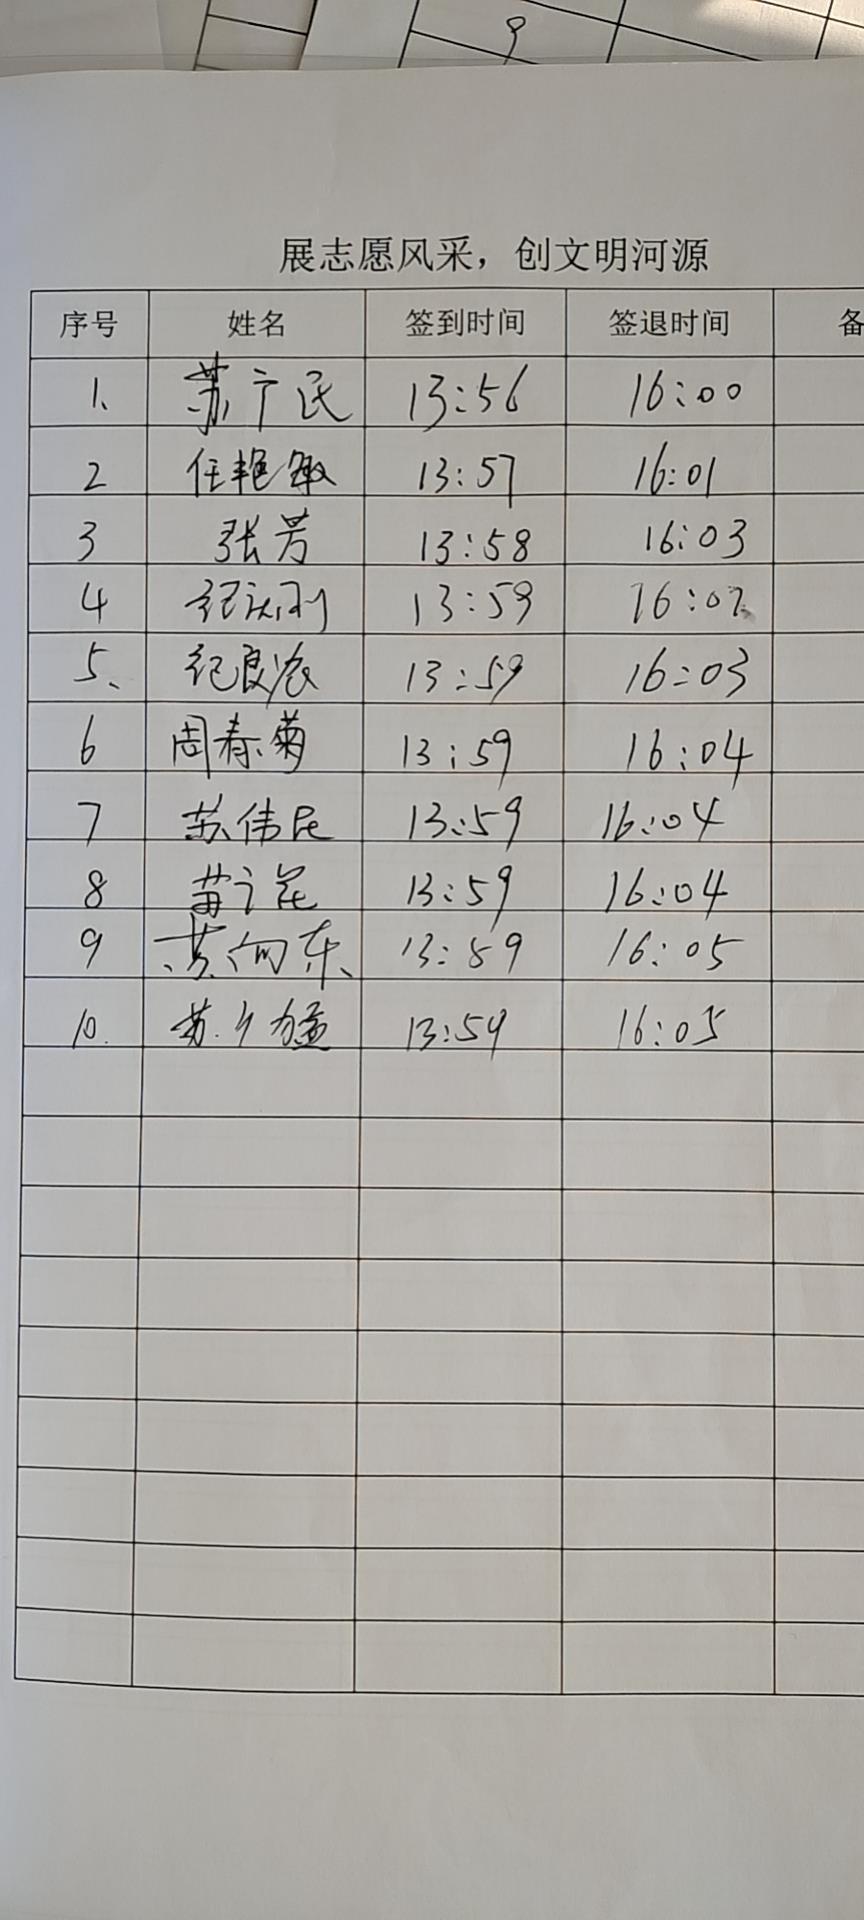 9
展志愿风采，创文明河源
序号 姓名 签到时间 签退时间 备
1、 苏广民 13:56 16:00
2 任艳敏 13:57 16:01
3 张芳 13:58 16:03
4 13:59 16:02
5、 纪良浓 13:59 16:03
6 周春菊 13:59 16:04
7 苏伟民 13:59 16:04
8 13:59 16:04
9 黄向东 13:59 16:05
10. 13:59 16:05